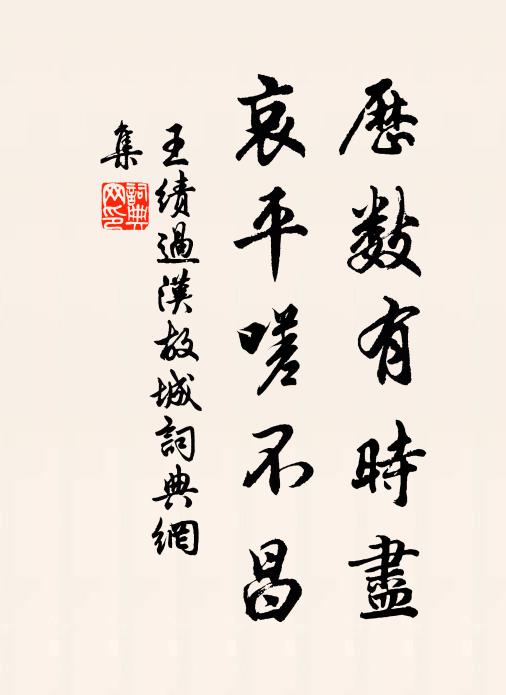 歷數有時盡
哀平嗟不昌
王績過漢故城詞典網
集
詞典
网印